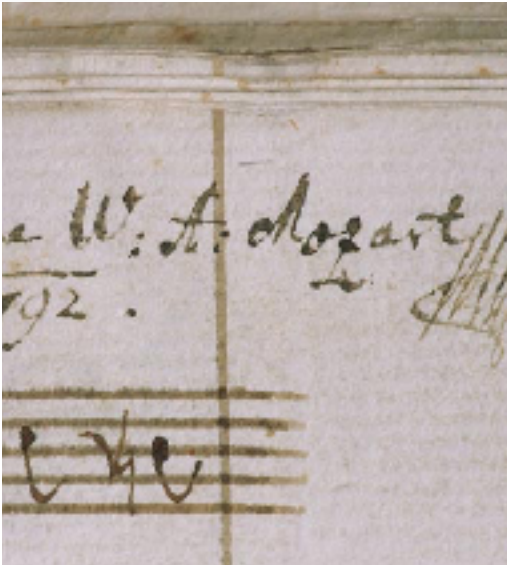 W: A: Mozart
792.